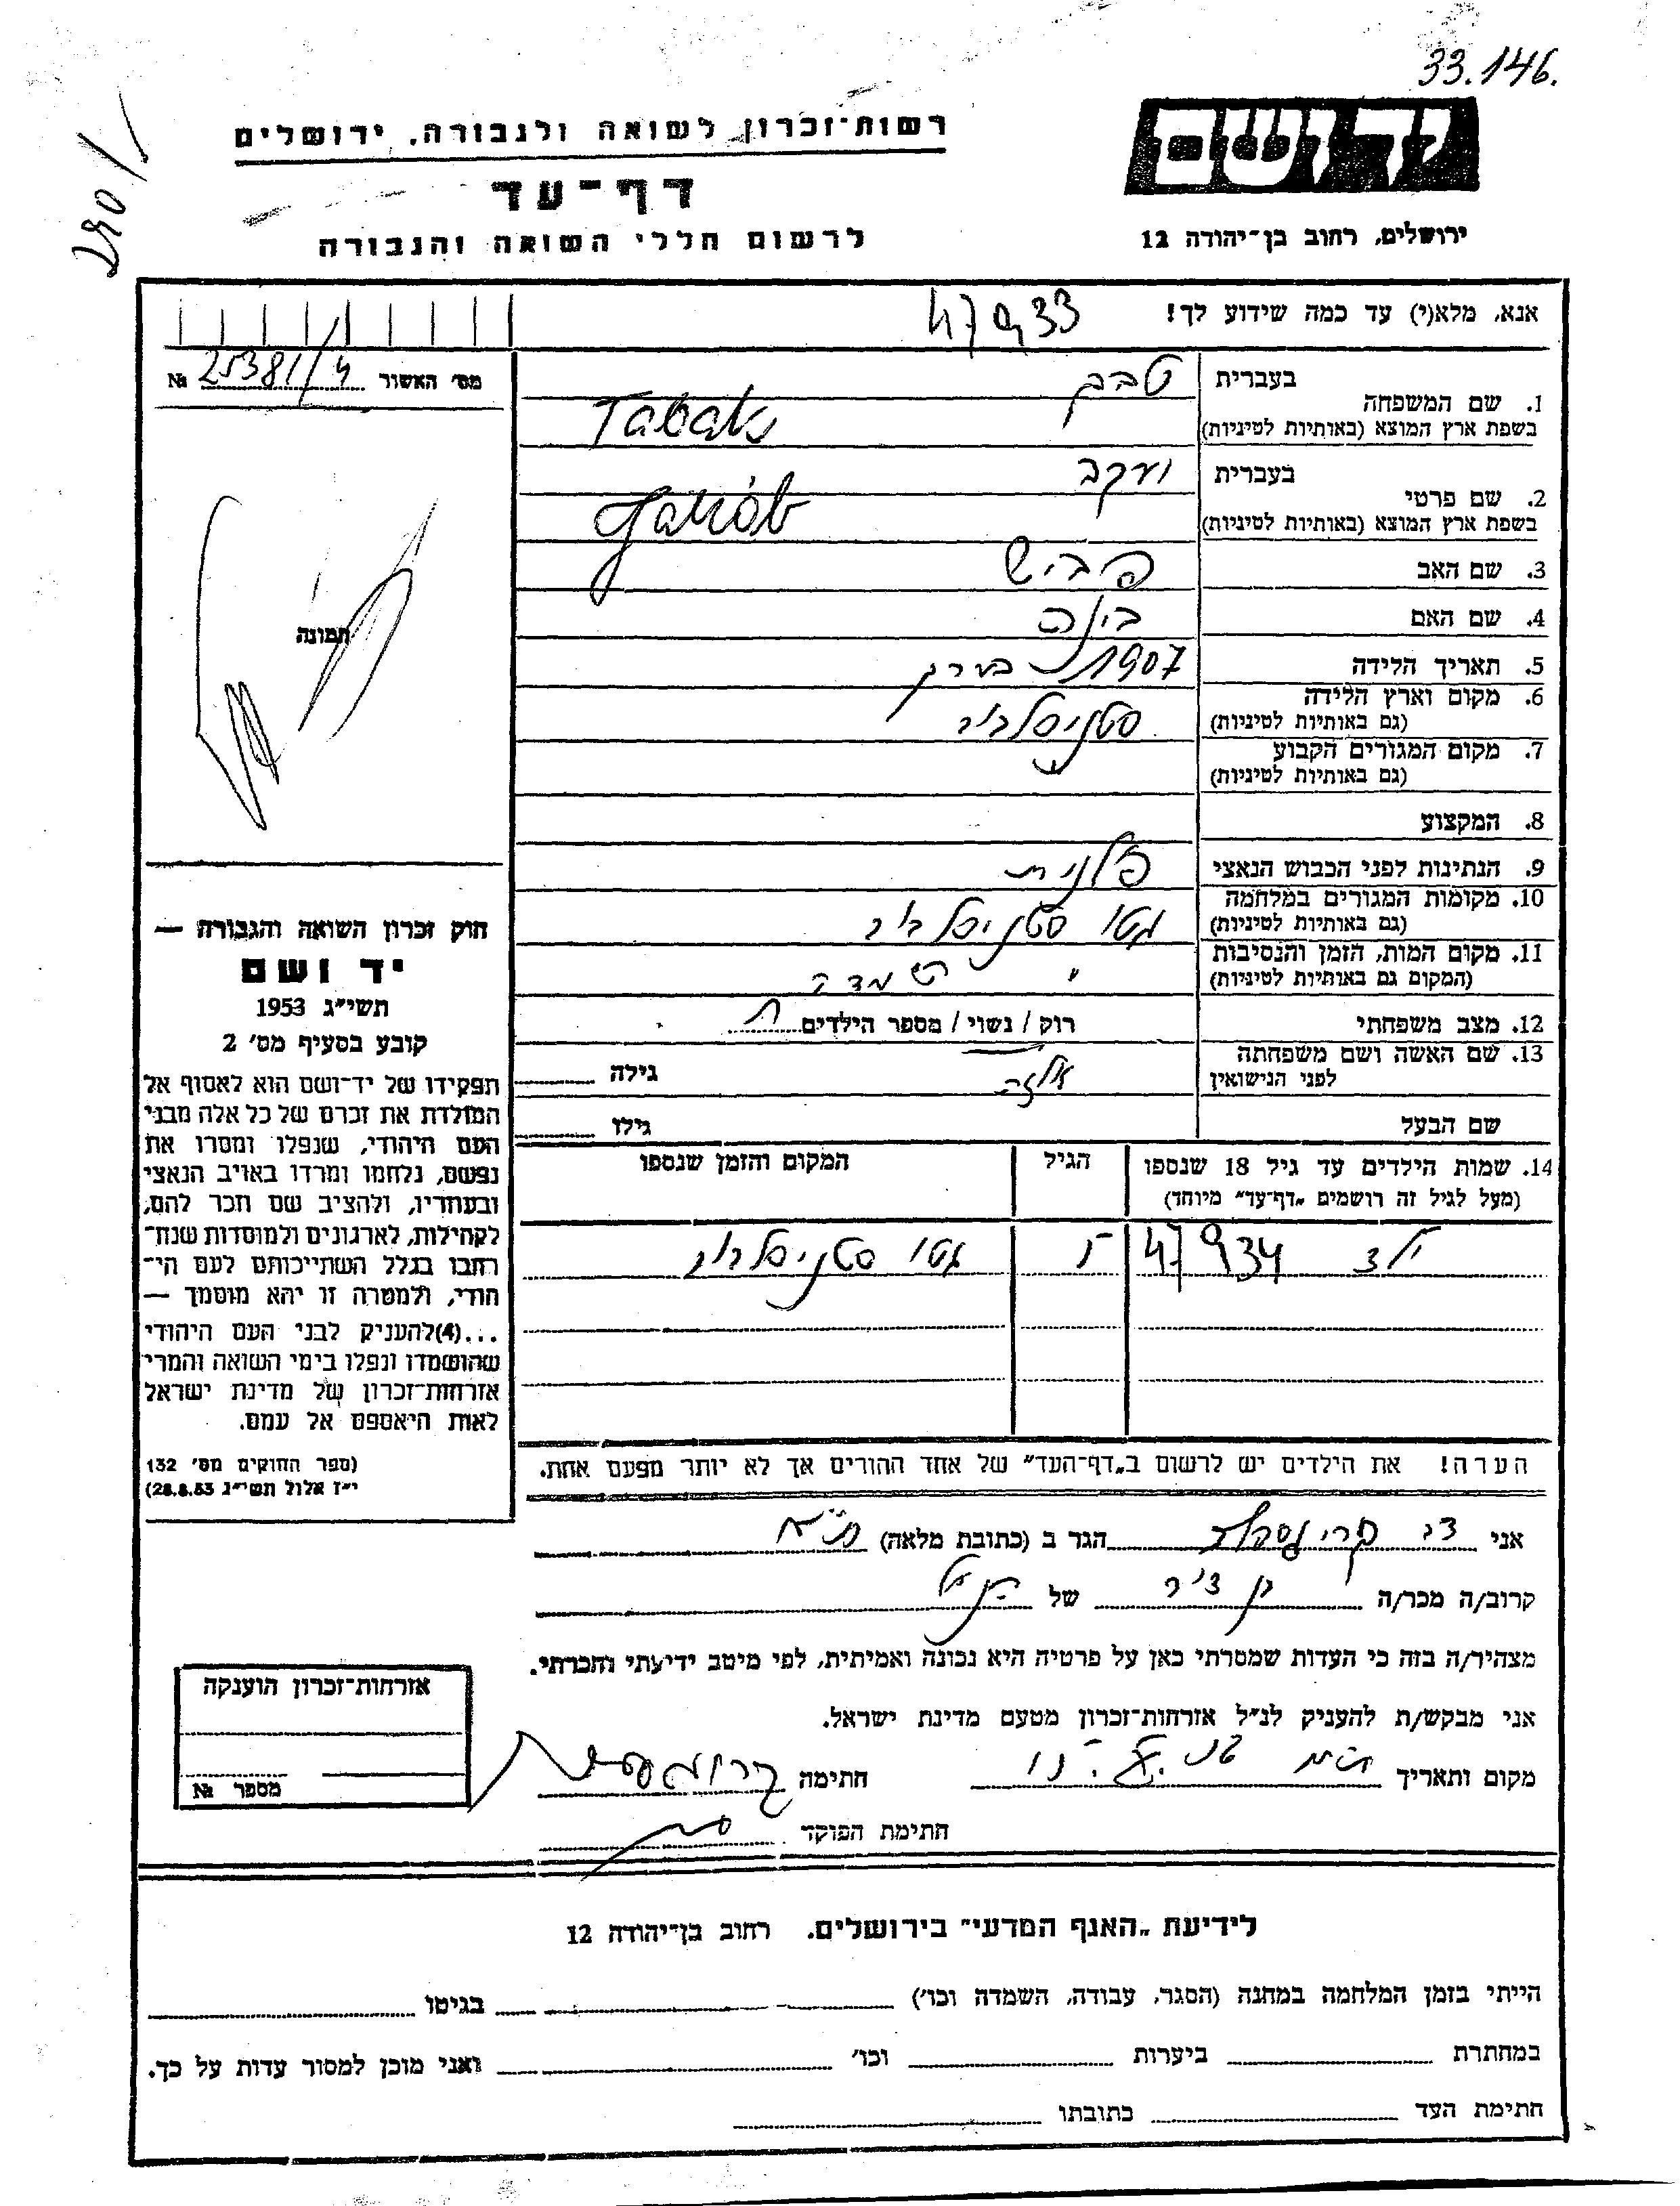 33.146.
רשות־זכרון לשואה ולגבורה, ירושלים
דף־עד
לרשום חללי השואה והגבורה
יד ושם
ירושלים, רחוב בן־יהודה 12
אנא, מלא(י) עד כמה שידוע לך!
47933
מס׳ האשור № 25381/4
1. שם המשפחה
בעברית טבק
בשפת ארץ המוצא (באותיות לטיניות) Tabak
2. שם פרטי
בעברית יעקב
בשפת ארץ המוצא (באותיות לטיניות) Jakób
3. שם האב פייביש
4. שם האם בינה
5. תאריך הלידה 1907 בערך
6. מקום וארץ הלידה סטניסלבוב
(גם באותיות לטיניות)
7. מקום המגורים הקבוע "
(גם באותיות לטיניות)
8. המקצוע
9. הנתינות לפני הכבוש הנאצי פולנית
10. מקומות המגורים במלחמה גטו סטניסלבוב
(גם באותיות לטיניות)
11. מקום המות, הזמן והנסיבות " השמדה
(המקום גם באותיות לטיניות)
12. מצב משפחתי רוק / נשוי / מספר הילדים
13. שם האשה ושם משפחתה
לפני הנישואין
גילה
שם הבעל
גילו
14. שמות הילדים עד גיל 18 שנספו
(מעל לגיל זה רושמים „דף־עד" מיוחד)
הגיל
המקום והזמן שנספו
ילד 47934
גטו סטניסלבוב
הערה! את הילדים יש לרשום ב„דף־העד" של אחד ההורים אך לא יותר מפעם אחת.
תמונה
חוק זכרון השואה והגבורה —
יד ושם
תשי״ג 1953
קובע בסעיף מס׳ 2
תפקידו של יד־ושם הוא לאסוף אל
המולדת את זכרם של כל אלה מבני
העם היהודי, שנפלו ומסרו את
נפשם, נלחמו ומרדו באויב הנאצי
ובעוזריו, ולהציב שם וזכר להם,
לקהילות, לארגונים ולמוסדות שנח־
רבו בגלל השתייכותם לעם הי־
הודי, ולמטרה זו יהא מוסמך —
...(4)להעניק לבני העם היהודי
שהושמדו ונפלו בימי השואה והמרי
אזרחות־זכרון של מדינת ישראל
לאות היאספם אל עמם.
(ספר החוקים מס׳ 132
י״ז אלול תשי״ג 28.8.53)
אני הגר ב (כתובת מלאה) ת״א
קרוב/ה מכר/ה בן דוד של הנ״ל
מצהיר/ה בזה כי העדות שמסרתי כאן על פרטיה היא נכונה ואמיתית, לפי מיטב ידיעתי והכרתי.
אני מבקש/ת להעניק לנ״ל אזרחות־זכרון מטעם מדינת ישראל.
מקום ותאריך חתימה
חתימת הפוקד
אזרחות־זכרון הוענקה
מספר №
לידיעת „האגף המדעי" בירושלים. רחוב בן־יהודה 12
הייתי בזמן המלחמה במחנה (הסגר, עבודה, השמדה וכו׳) בגיטו
במחתרת ביערות וכו׳ ואני מוכן למסור עדות על כך.
חתימת העד כתובתו